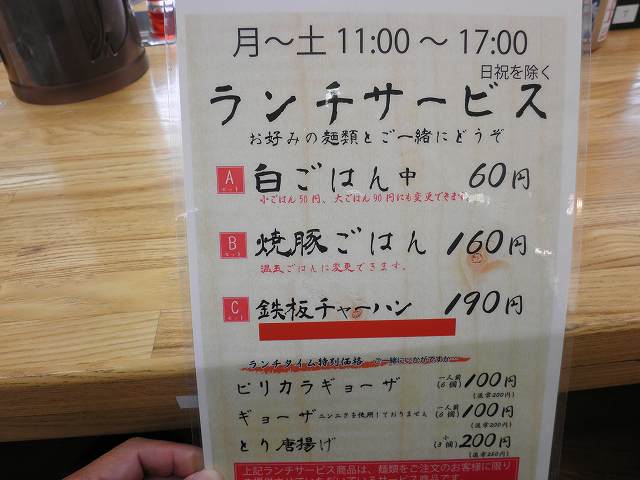 月～土 11:00 ～ 17:00
日祝を除く
ランチサービス
お好みの麺類とご一緒にどうぞ
A セット 白ごはん中 60円
小ごはん50円、大ごはん90円にも変更できます。
B セット 焼豚ごはん 160円
温玉ごはんに変更できます。
C セット 鉄板チャーハン 190円
ランチタイム特別価格 ご一緒にいかがですか…
ピリカラギョーザ 一人前(6個) 100円
(通常200円)
ギョーザ ニンニクを使用しておりません 一人前(6個) 100円
(通常200円)
とり唐揚げ 小(3個) 200円
(通常250円)
上記ランチサービス商品は、麺類をご注文のお客様に限り